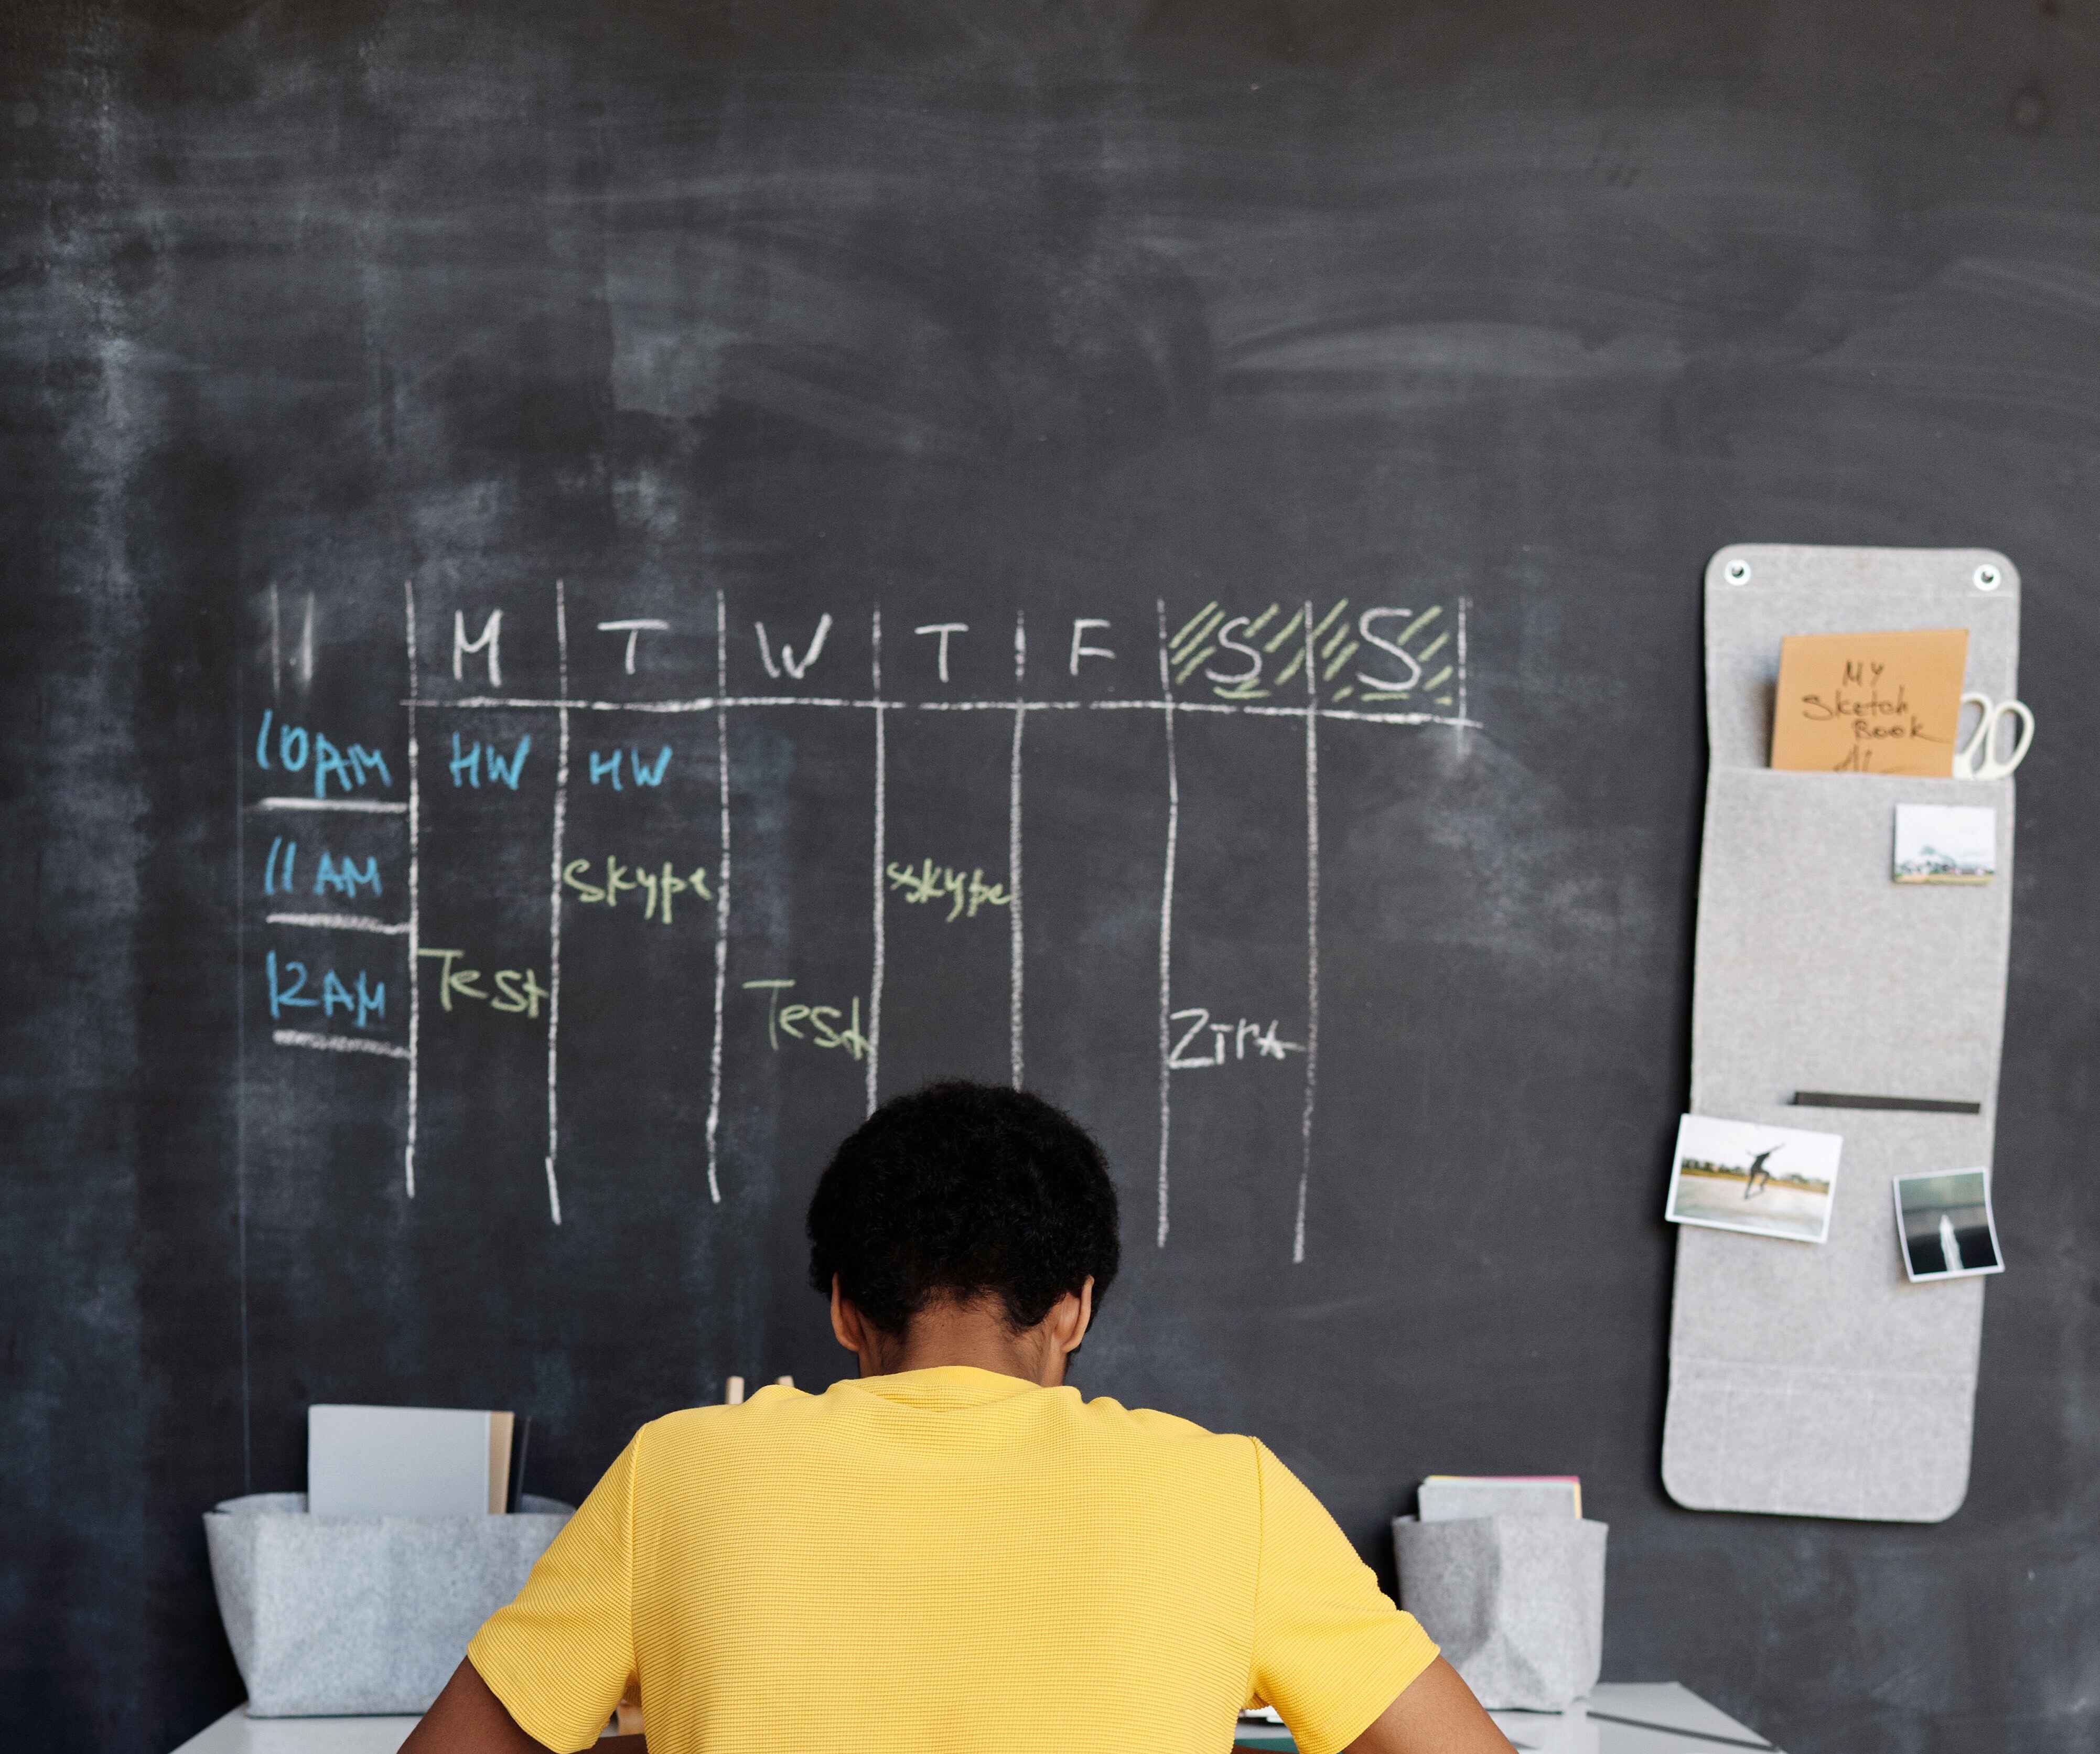 M T W T F S S
10AM HW HW
11 AM Skype Skype
12AM Test Test
MY
Sketch
Book